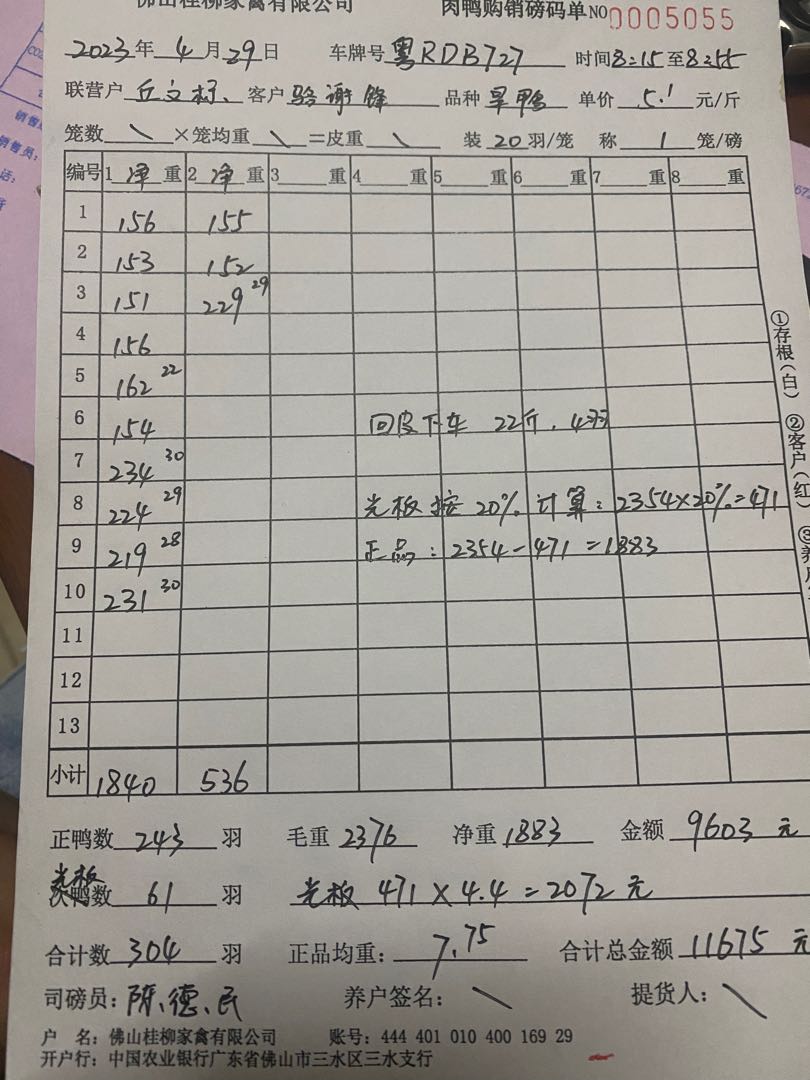 佛山桂柳家禽有限公司 肉鸭购销磅码单 NO 0005055
2023年 4月 29日 车牌号 粤RDB727 时间 8:15 至 8:55
联营户 丘文标 客户 骆谢锋 品种 旱鸭 单价 5.1 元/斤
笼数 \ ×笼均重 \ =皮重 \ 装 20 羽/笼 称 1 笼/磅
编号 1 净 重 2 净 重 3 重 4 重 5 重 6 重 7 重 8 重
1 156 155
2 153 152
3 151 229 29
4 156
5 162 22
6 154 回皮下车 22斤, 4羽
7 234 30
8 224 29 光板按20%计算: 2354×20%=471
9 219 28 正品: 2354-471=1883
10 231 30
11
12
13
小计 1840 536
正鸭数 243 羽 毛重 2376 净重 1883 金额 9603 元
光板
次鸭数 61 羽 光板 471×4.4=2072元
合计数 304 羽 正品均重: 7.75 合计总金额 11675 元
司磅员: 陈德民 养户签名: \ 提货人: \
户 名: 佛山桂柳家禽有限公司 账号: 444 401 010 400 169 29
开户行: 中国农业银行广东省佛山市三水区三水支行
①存根(白) ②客户(红) ③养户